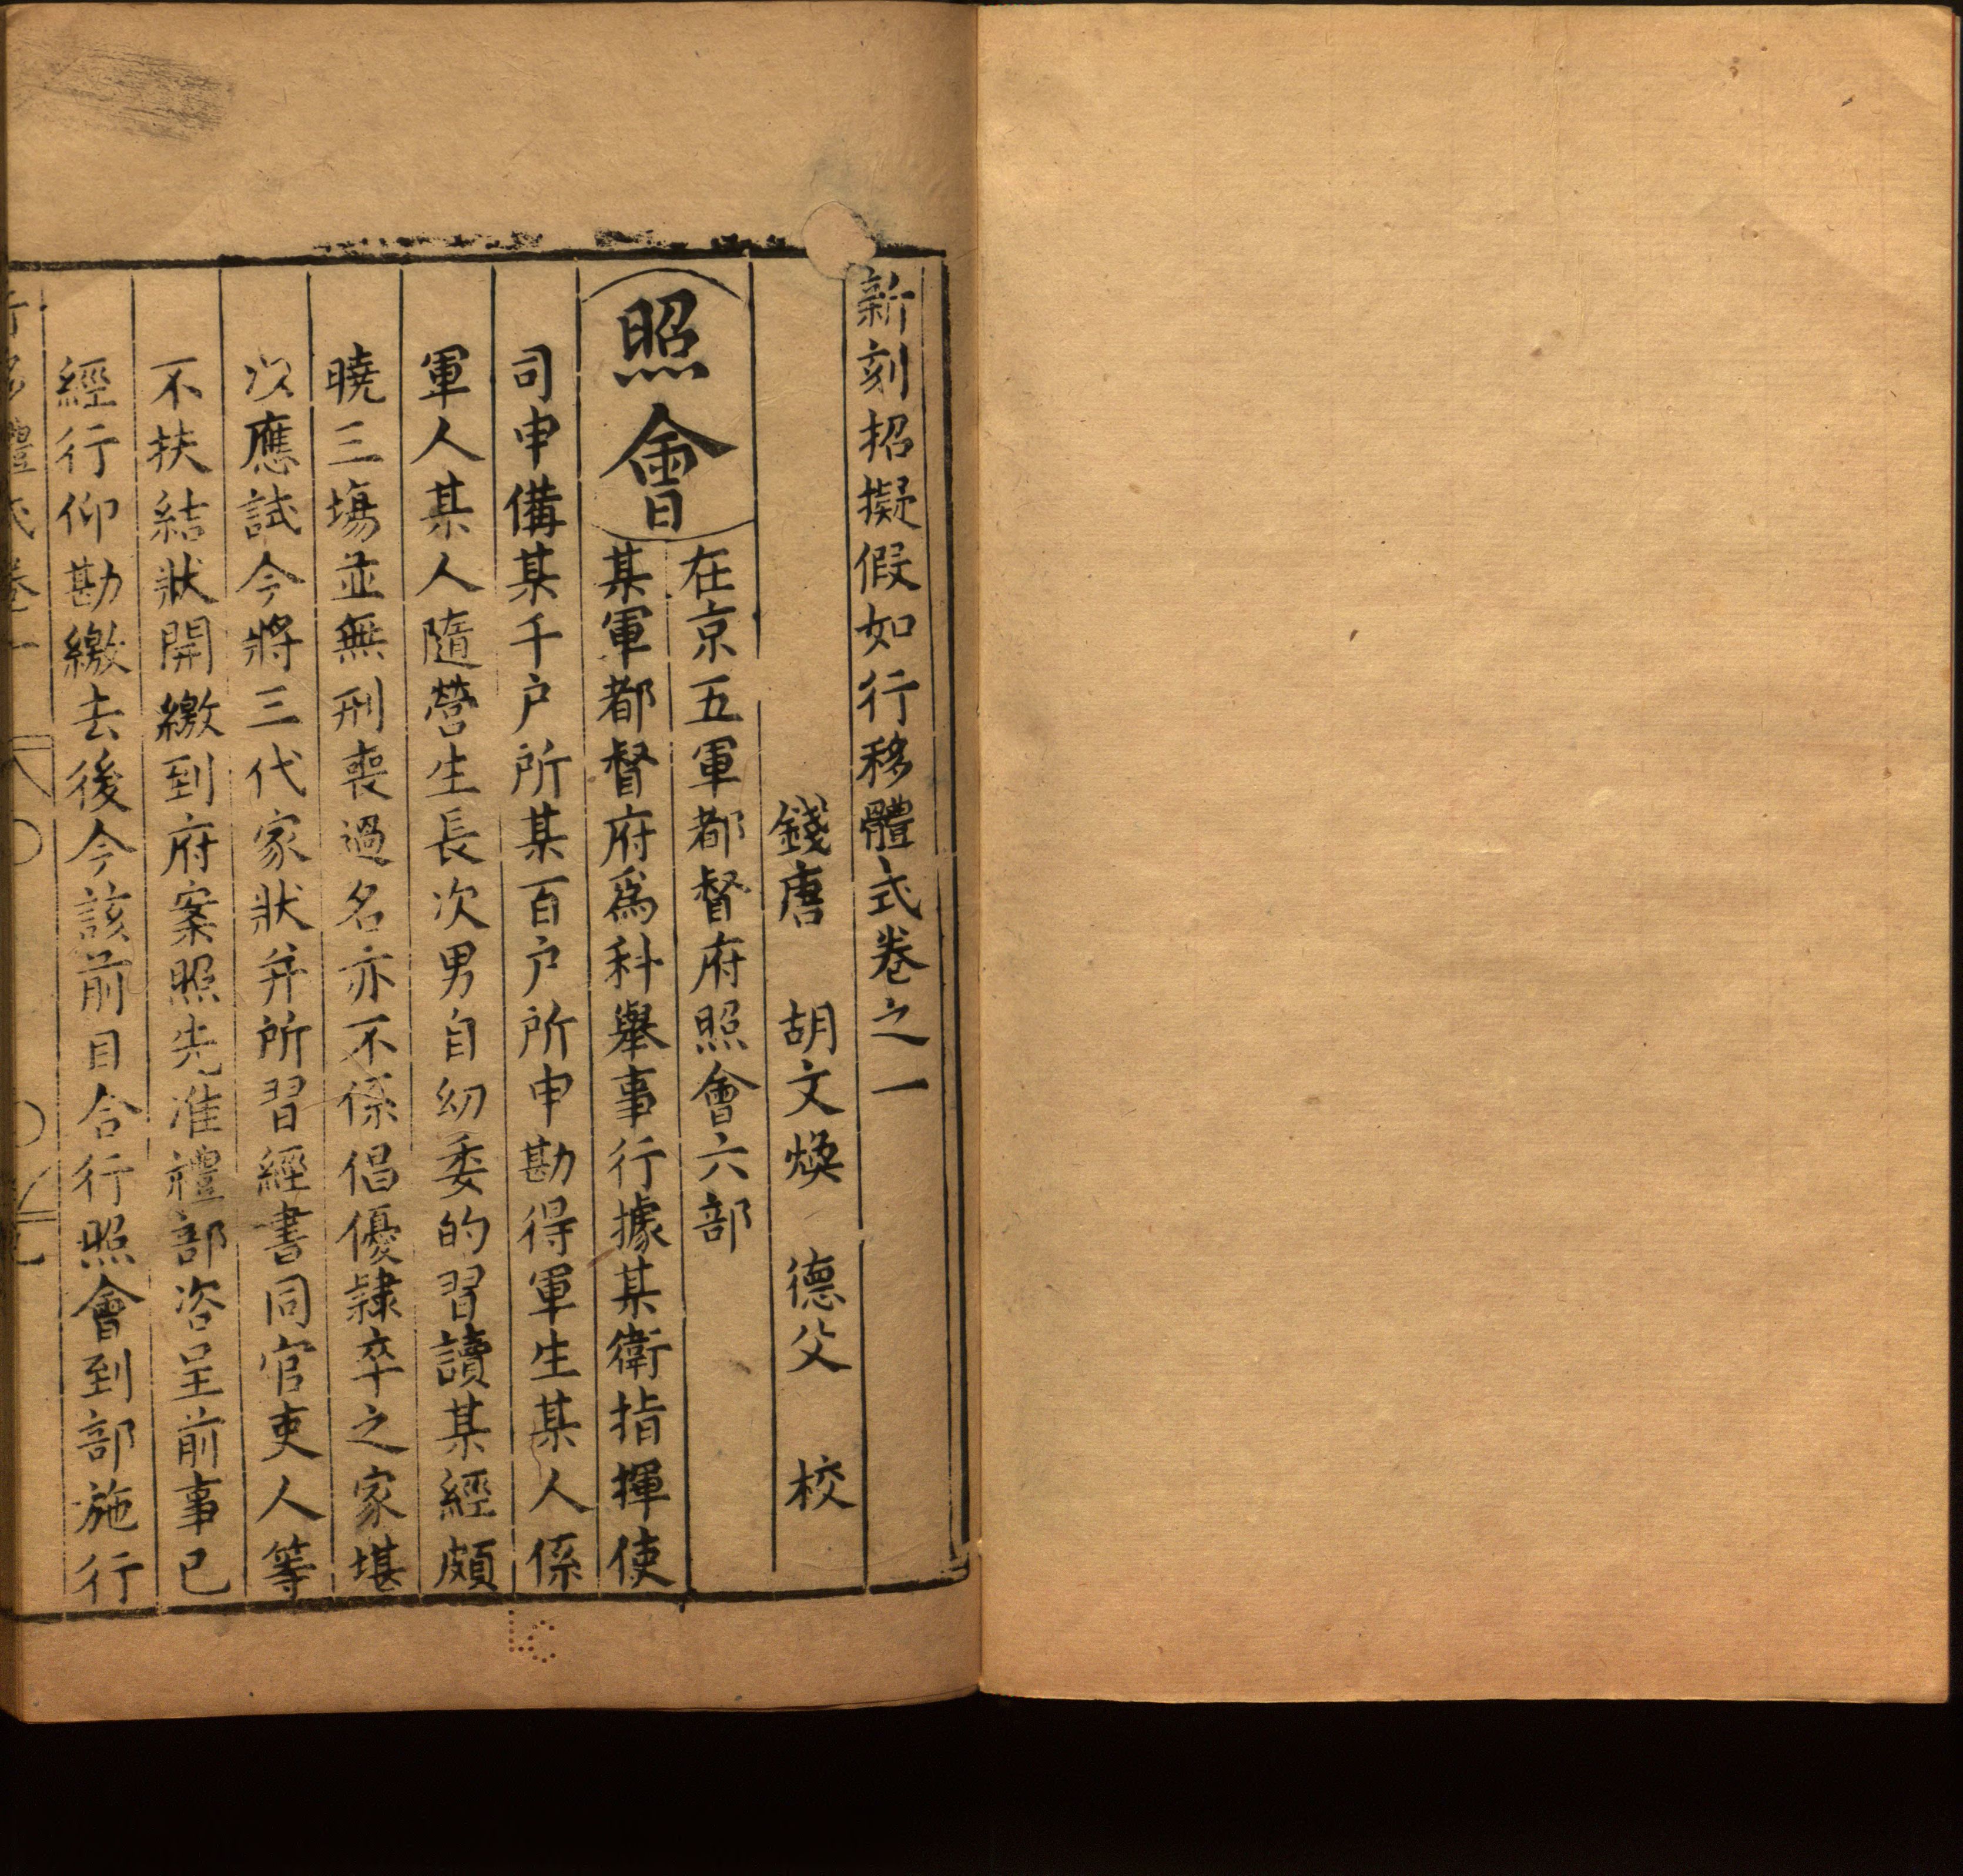 新刻招擬假如行移體式卷之一
錢唐 胡文煥 德父 校
照會
在京五軍都督府照會六部
某軍都督府爲科舉事行據某衛指揮使
司申備某千户所某百户所申勘得軍生某人係
軍人某人隨營生長次男自幼委的習讀某經頗
曉三塲並無刑喪過名亦不係倡優隷卒之家堪
次應試今將三代家狀并所習經書同官吏人等
不扶結狀開繳到府案照先准禮部咨呈前事已
經行仰勘繳去後今該前目合行照會到部施行
行移體式卷一